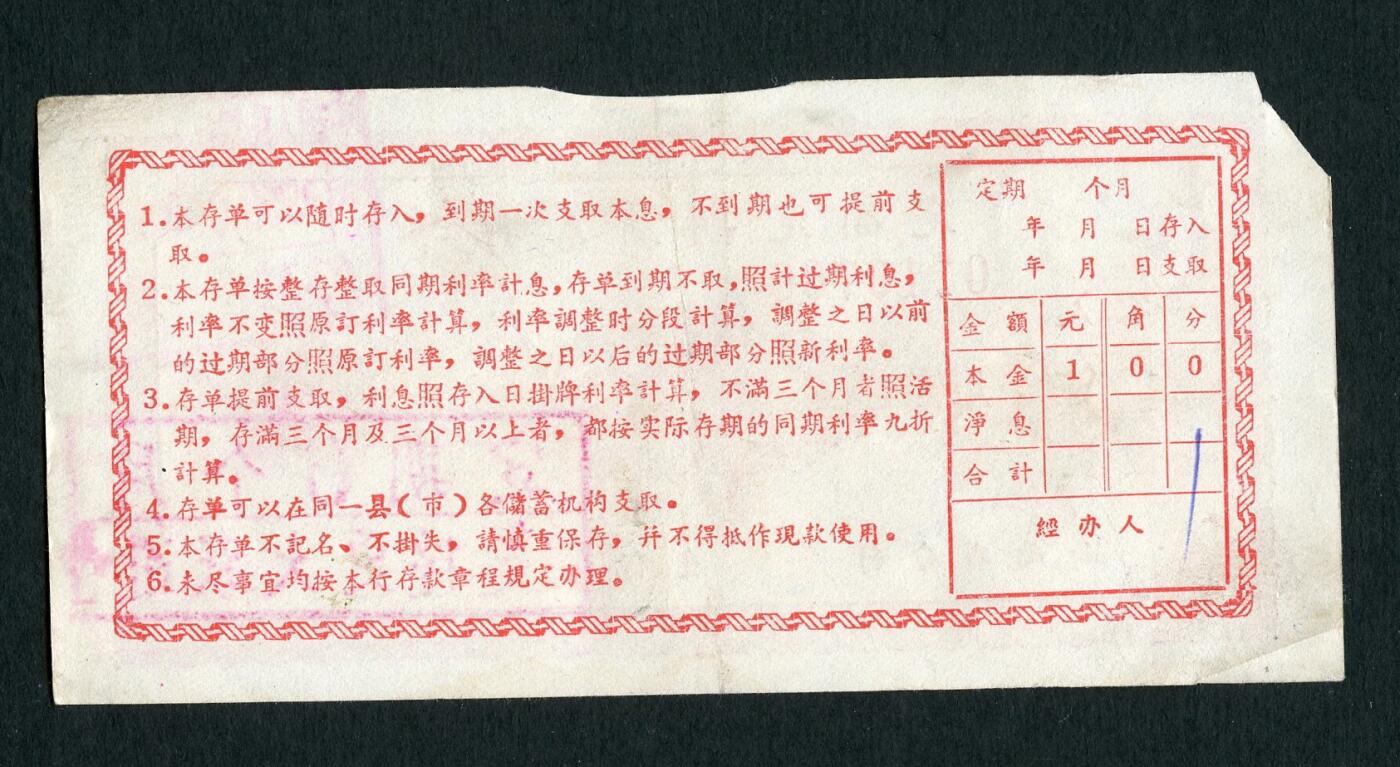 1.本存单可以随时存入，到期一次支取本息，不到期也可提前支
取。
2.本存单按整存整取同期利率計息，存单到期不取，照計过期利息，
利率不变照原訂利率計算，利率調整时分段計算，調整之日以前
的过期部分照原訂利率，調整之日以后的过期部分照新利率。
3.存单提前支取，利息照存入日掛牌利率計算，不滿三个月者照活
期，存滿三个月及三个月以上者，都按实际存期的同期利率九折
計算。
4.存单可以在同一县（市）各儲蓄机构支取。
5.本存单不記名、不掛失，請慎重保存，并不得抵作現款使用。
6.未尽事宜均按本行存款章程規定办理。
定期 个月
年 月 日存入
年 月 日支取
金額 元 角 分
本金 1 0 0
淨息
合計
經办人